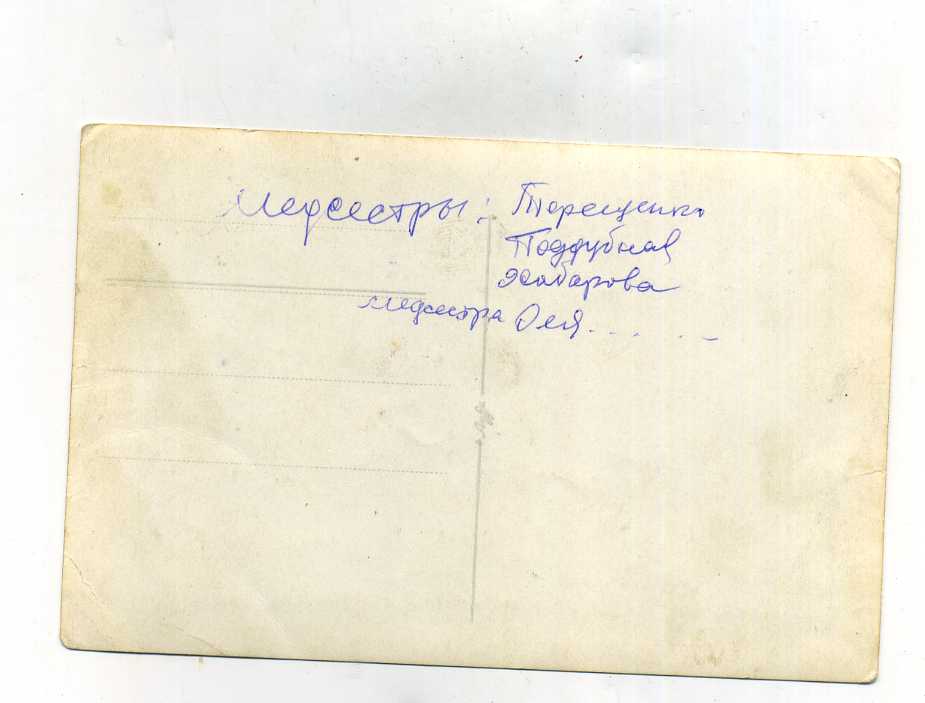 Медсестры: Терещенко
Поддубная
Жабарова
медсестра Оля......